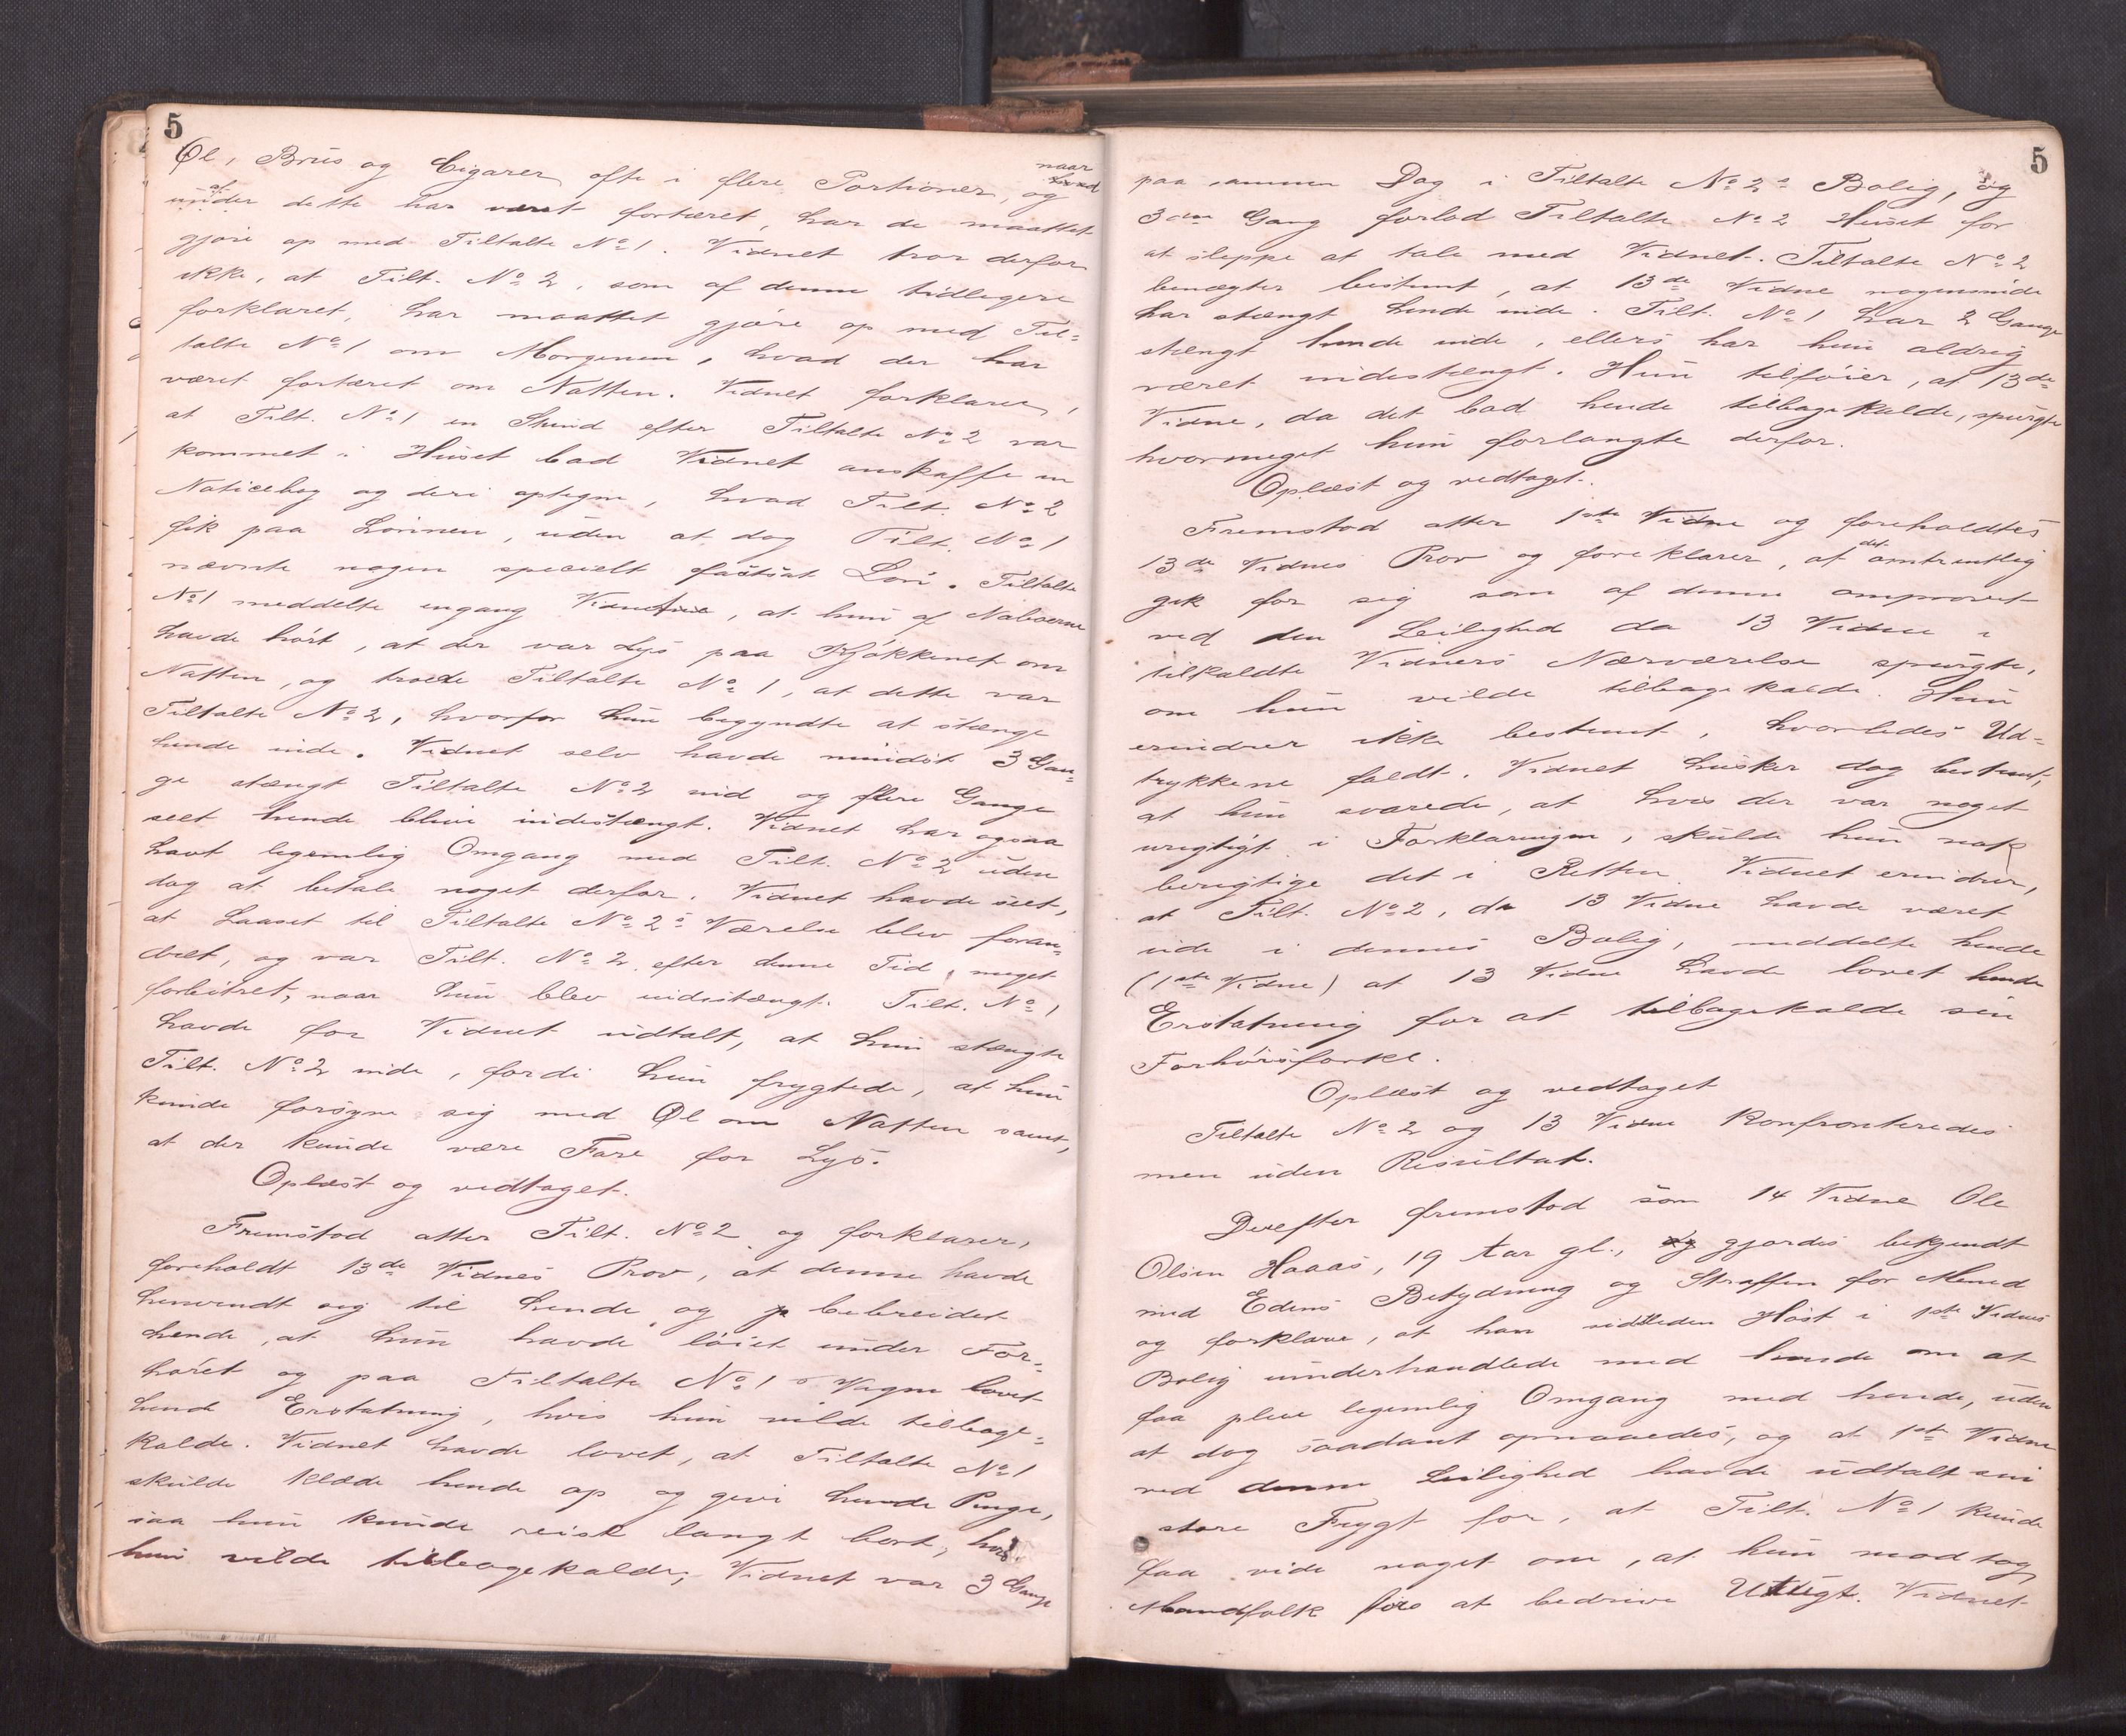 5
Øl, Brus og Cigarer ofte i flere Portioner, og naar
af dette har været fortæret, har de maattet
gjøre op med Tiltalte No 1. Vidnet tror derfor
ikke, at Tilt. No 2, som af denne tidligere
forklaret, har maattet gjøre op med Til-
talte No 1 om Morgenen, hvad der har
været fortæret om Natten. Vidnet forklarer,
at Tilt. No 1 en Stund efter Tiltalte No 2 var
kommet i Huset bad Vidnet anskaffe en
Noticebog og deri optegne, hvad Tilt. No 2
fik paa Lønnen, uden at dog Tilt. No 1
nævnte nogen specielt fastsat Løn. Tiltalte
No 1 meddelte engang Vidnet, at hun af Naboerne
havde hørt, at der var Lys paa Kjøkkenet om
Natten, og troede Tiltalte No 1, at dette var
Tiltalte No 2, hvorfor hun begyndte at stænge
hende inde. Vidnet selv havde mindst 3 Gan-
ge stængt Tiltalte No 2 ind og flere Gange
seet hende blive indestængt. Vidnet har ogsaa
havt legemlig Omgang med Tilt. No 2 uden
dog at betale noget derfor. Vidnet havde seet,
at Laaset til Tiltalte No 2s Værelse blev foran-
dret, og var Tilt. No 2 efter denne Tid meget
forbitret, naar hun blev indestængt. Tilt. No 1
havde for Vidnet udtalt, at hun stængte
Tilt. No 2 inde, fordi hun frygtede, at hun
kunde forsyne sig med Øl om Natten samt,
at der kunde være Fare for Lys.
Oplæst og vedtaget.
Fremstod atter Tilt. No 2 og forklarer,
foreholdt 13de Vidnes Prov, at denne havde
henvendt sig til hende og bebreidet
hende, at hun havde løiet under For-
høret og paa Tiltalte No 1s Vegne lovet
hende Erstatning, hvis hun vilde tilbage-
kalde. Vidnet havde lovet, at Tiltalte No 1
skulde klæde hende op og give hende Penge,
saa hun kunde reise langt bort, hvis
hun vilde tilbagekalde; Vidnet var 3 Gange
5
paa samme Dag i Tiltalte No 2s Bolig, og
3die Gang forlod Tiltalte No 2 Huset for
at sleppe at tale med Vidnet. Tiltalte No 2
benægter bestemt, at 13de Vidne nogensinde
har stængt hende inde. Tilt. No 1 har 2 Gange
stængt hende inde, ellers har hun aldrig
været indestængt. Hun tilføier, at 13de
Vidne, da det bad hende tilbagekalde, spurgte
hvormeget hun forlangte derfor.
Oplæst og vedtaget.
Fremstod atter 1ste Vidne og foreholdtes
13de Vidnes Prov og foreklarer, at det omtrentlig
gik for sig som af denne omprovet
ved den Leilighed da 13 Vidne i
tilkaldte Vidners Nærværelse spurgte,
om hun vilde tilbagekalde. Hun
erindrer ikke bestemt, hvorledes Ud-
trykkene faldt. Vidnet husker dog bestemt,
at hun svarede, at hvis der var noget
urigtigt i Forklaringen, skulde hun nok
berigtige det i Retten. Vidnet erindrer,
at Tilt. No 2, da 13 Vidne havde været
ude i dennes Bolig, meddelte hende
(1ste Vidne) at 13 Vidne havde lovet hende
Erstatning for at tilbagekalde sin
Forhørsforkl.
Oplæst og vedtaget
Tiltalte No 2 og 13 Vidne konfronteredes
men uden Resultat.
Derefter fremstod som 14 Vidne Ole
Olsen Haaas, 19 Aar gl., gjordes bekjendt
med Edens Betydning og Straffen for Mened
og forklare, at han sidstleden Høst i 1ste Vidnes
Bolig underhandlede med hende om at
faa pleie legemlig Omgang med hende, uden
at dog saadant opnaaedes, og at 1ste Vidne
ved denne Leilighed havde udtalt sin
store Frygt for, at Tilt. No 1 kunde
faa vide noget om, at hun modtog
Mandfolk for at bedrive Utugt. Vidnet